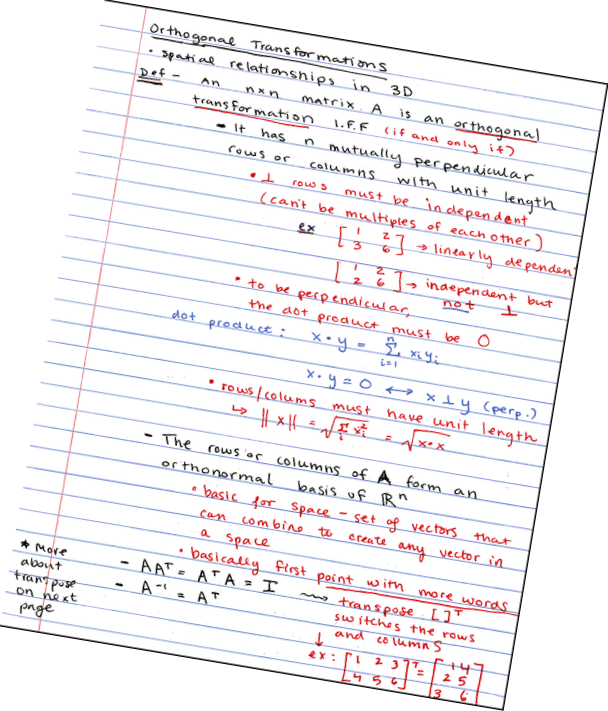 Orthogonal Transformations
• spatial relationships in 3D
Def - An n×n matrix A is an orthogonal
transformation I.F.F (if and only if)
- It has n mutually perpendicular
rows or columns with unit length
• ⊥ rows must be independent
(can't be multiples of each other)
ex [1 2; 3 6] → linearly dependent
[1 2; 2 6] → independent but
not ⊥
• to be perpendicular,
the dot product must be 0
dot product: x • y = Σ_{i=1}^{n} x_i y_i
x • y = 0 ⟷ x ⊥ y (perp.)
• rows/colums must have unit length
↳ ||x|| = √(Σ_i x_i^2) = √(x•x)
- The rows or columns of A form an
orthonormal basis of ℝ^n
• basic for space - set of vectors that
can combine to create any vector in
a space
• basically first point with more words
- AA^T = A^T A = I ⟿ transpose [ ]^T
- A^{-1} = A^T
switches the rows
and columns
↓
ex: [1 2 3; 4 5 6]^T = [1 4; 2 5; 3 6]
* More
about
transpose
on next
page